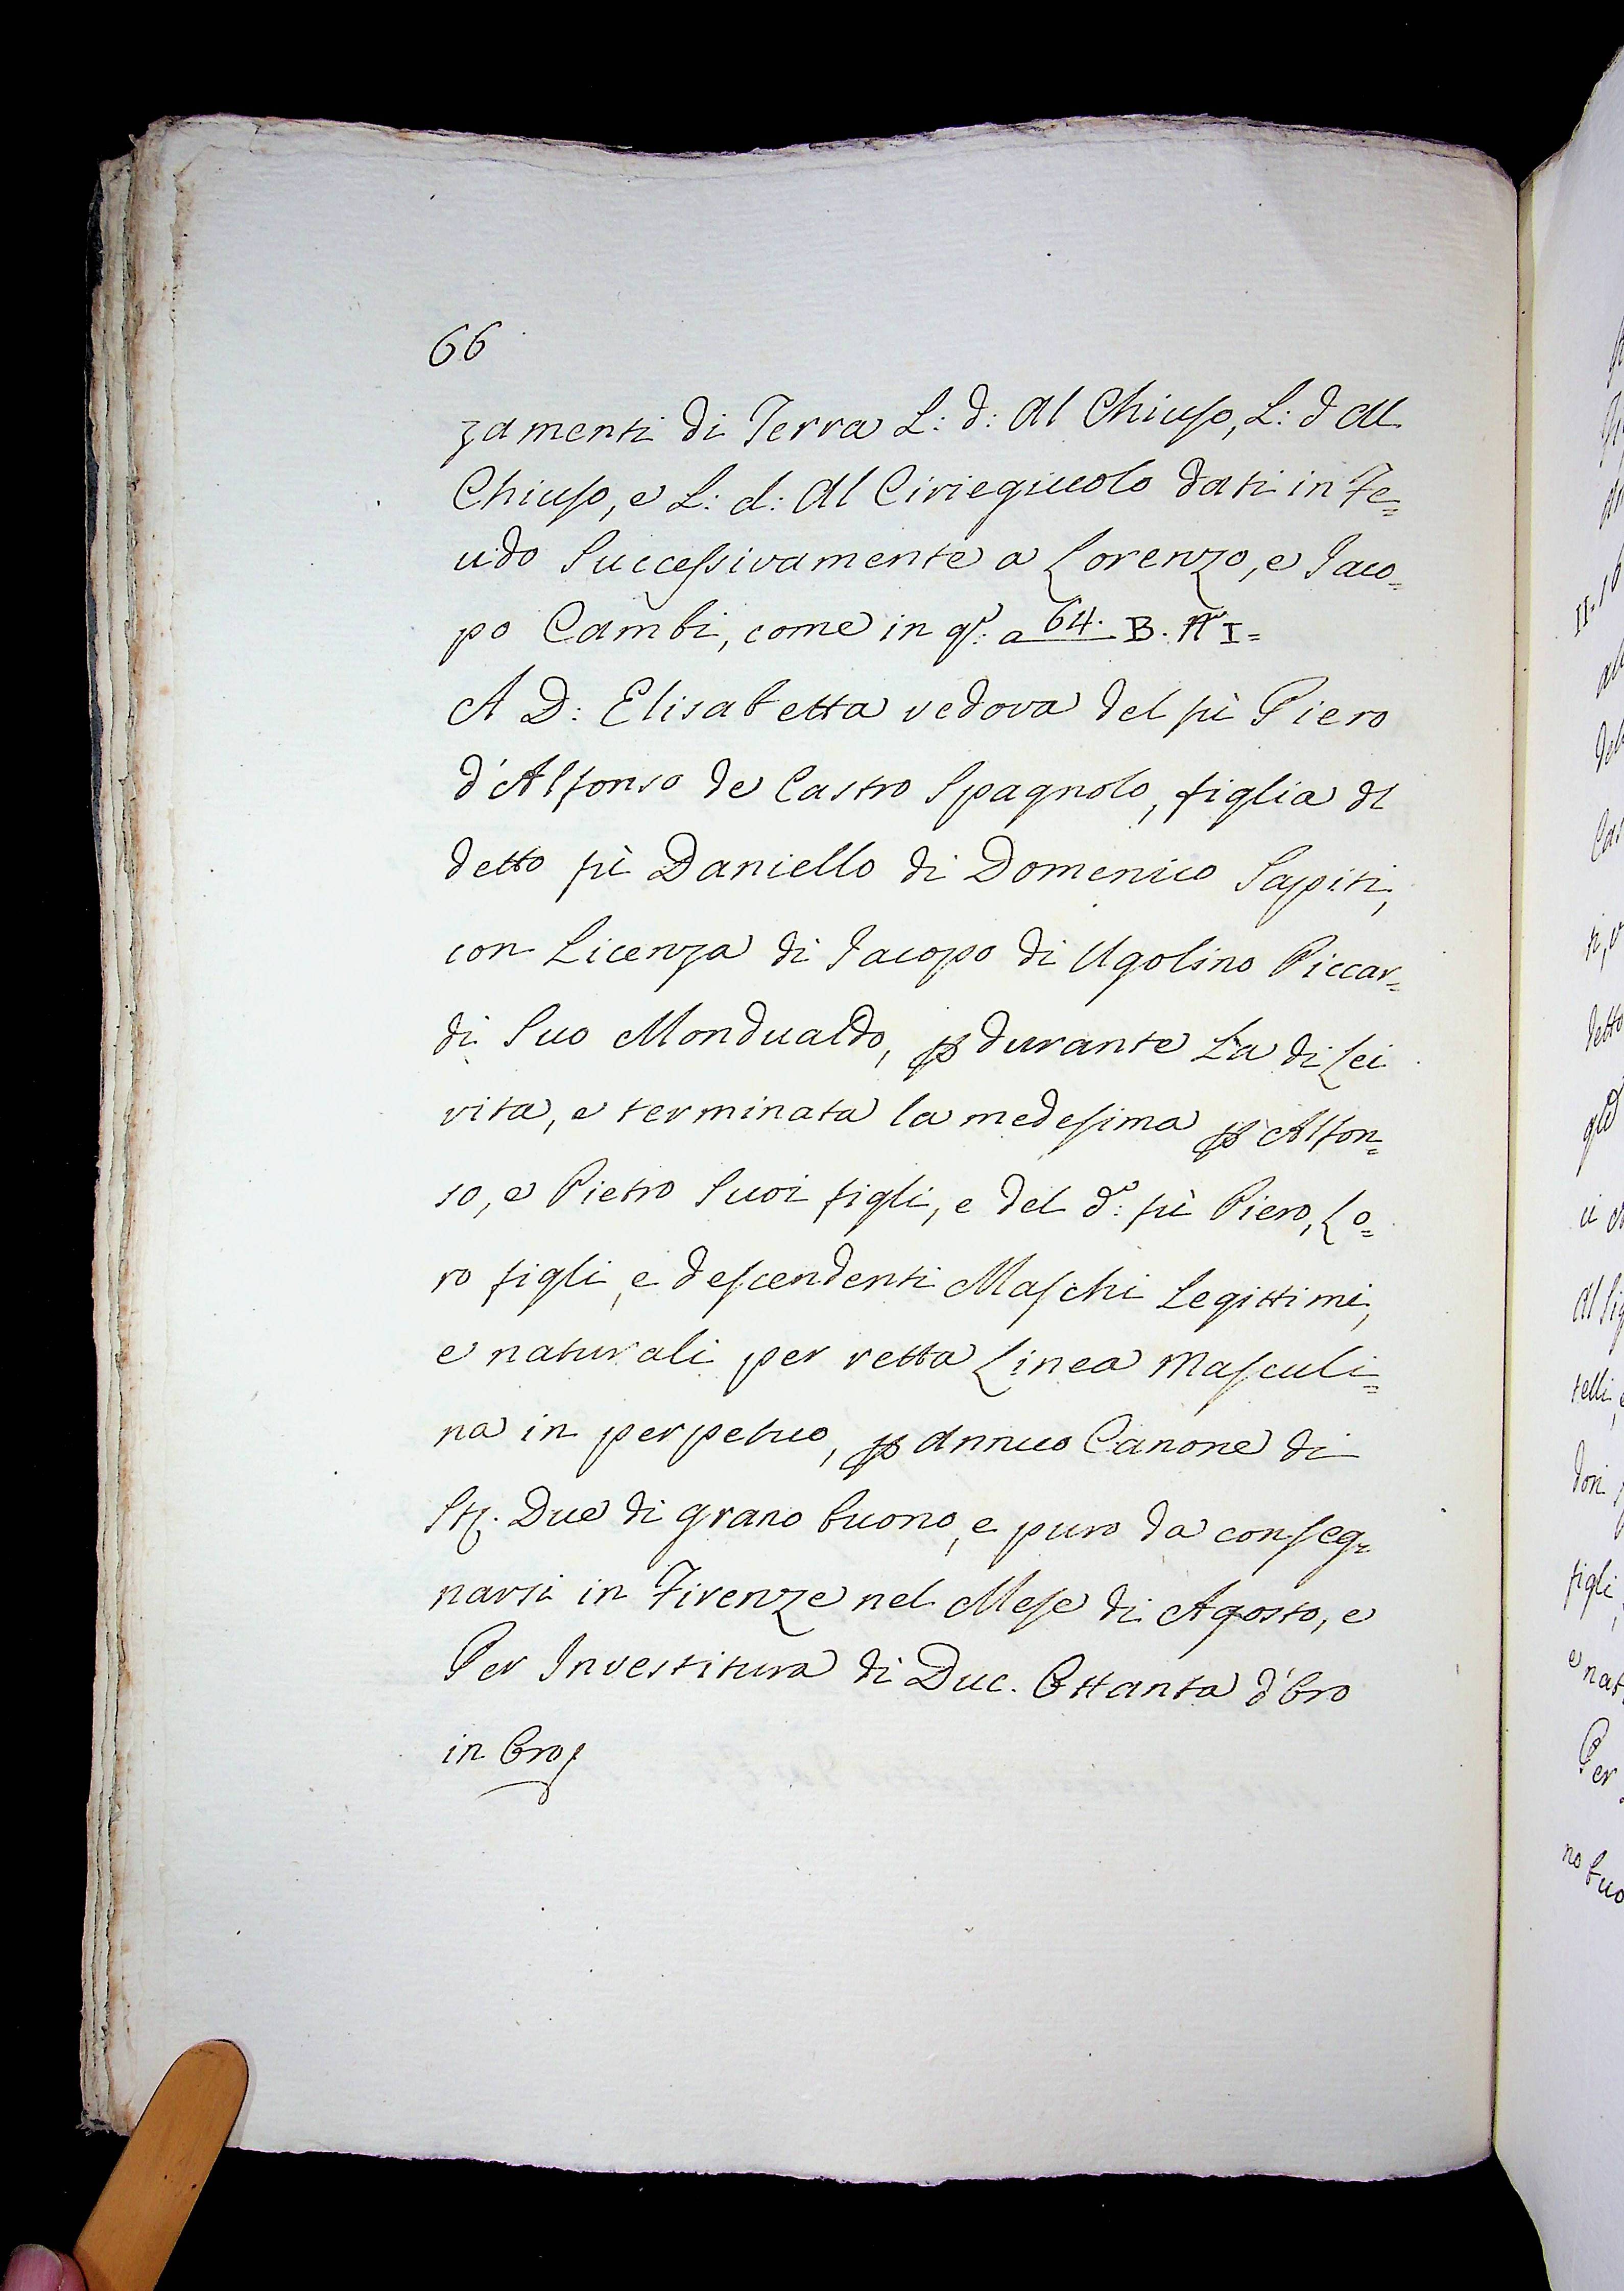 66
zamenti di Terra L: d: Al Chiuso, L: d Al
Chiuso, e L: d: Al Ciriegiuolo dati in Fe=
udo Successivamente a Lorenzo, e Jaco=
po Cambi, come in qº: a 64. B. Nº I=
A D: Elisabetta vedova del fù Piero
d'Alfonso de Castro Spagnolo, figlia dl
detto fù Daniello di Domenico Sapiti,
con Licenza di Jacopo di Ugolino Piccar=
di Suo Mondualdo, ꝑ durante La di Lei
vita, e terminata la medesima ꝑ Alfon=
so, e Pietro Suoi figli, e del dº: fù Piero, Lo=
ro figli, e descendenti Maschi Legittimi,
e naturali per retta Linea Masculi=
na in perpetuo, ꝑ Annuo Canone di
Sta. Due di grano buono, e puro da conseg=
narsi in Firenze nel Mese di Agosto, e
Per Investitura di Duc. Ottanta d'Oro
in Oro